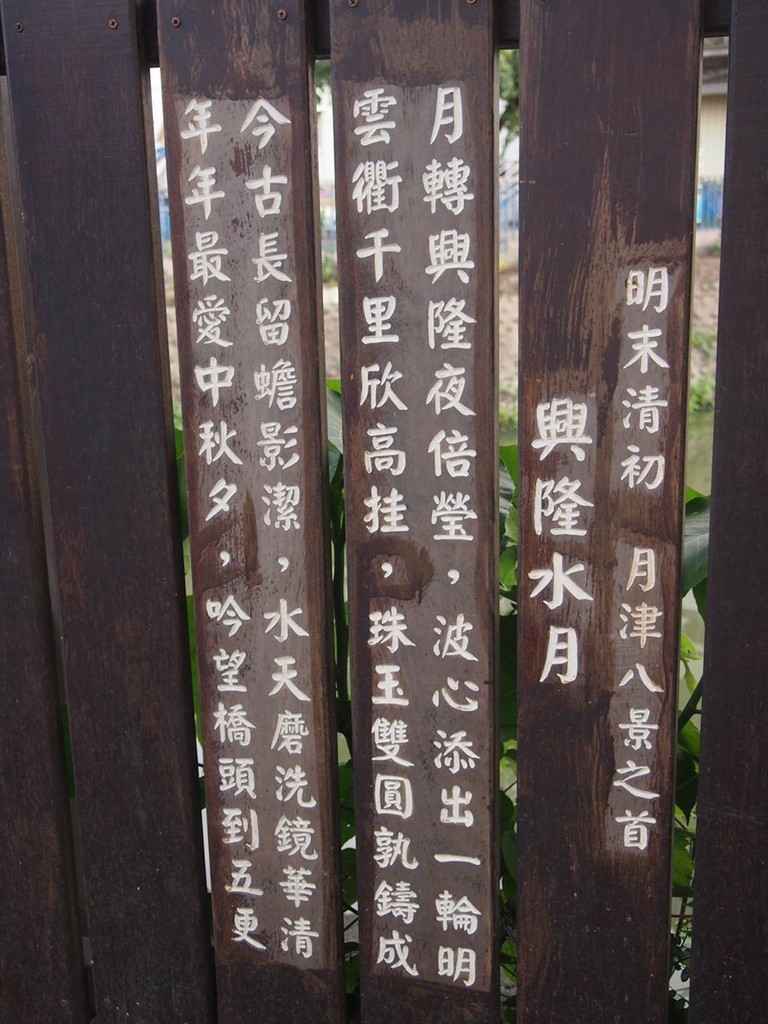 明末清初 月津八景之首
興隆水月
月轉興隆夜倍瑩，波心添出一輪明
雲衢千里欣高挂，珠玉雙圓孰鑄成
今古長留蟾影潔，水天磨洗鏡華清
年年最愛中秋夕，吟望橋頭到五更